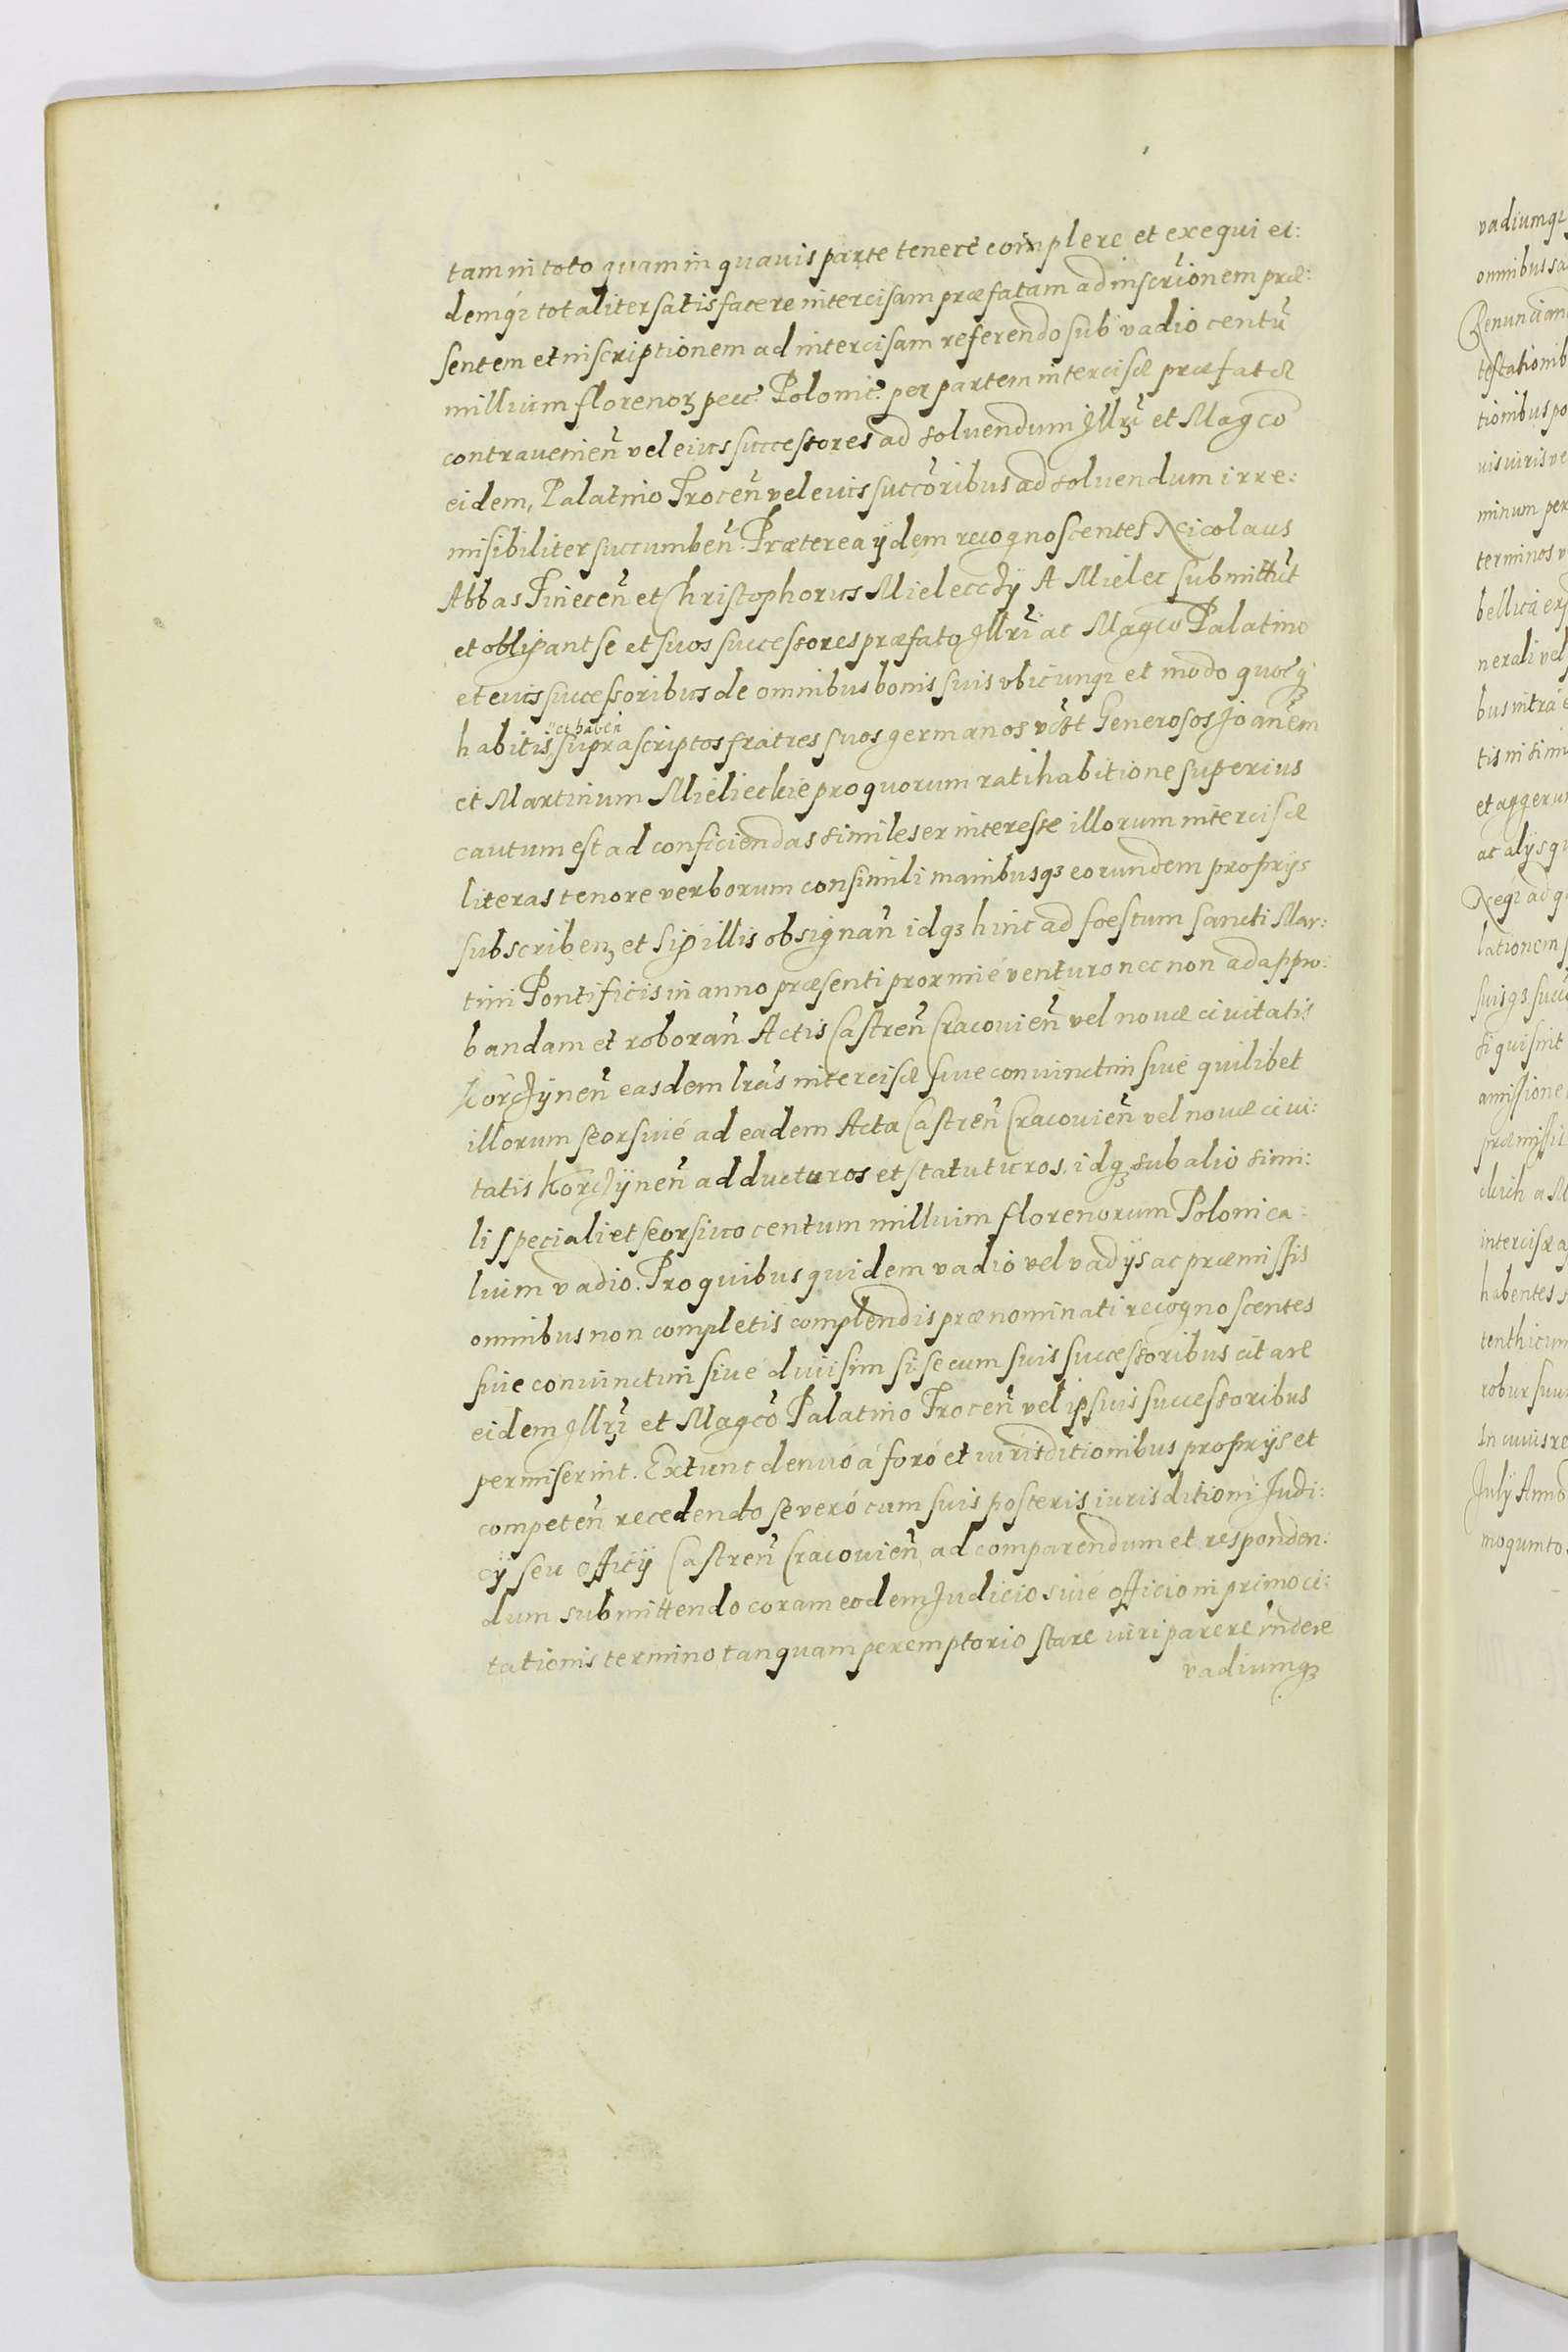 tam in toto quam in quauis parte tenere complere et exequi ei:
demq₃ totaliter satisfacere intercisam præfatam ad inscr̃ionem præ:
sentem et inscriptionem ad intercisam referendo sub vadio centũ
millium florenoꝝ pecc. Polonic. per partem intercisæ præfatæ
contraueñien̄ vel eius successores ad soluendum Illr̃i et Magco
eidem, Palatino Trocen̄ vel eius succõribus ad soluendum irre:
misibiliter succumben̄. Præterea ÿdem recognoscentes Nicolaus
Abbas Tinecen̄ et Christophorus Mieleccÿ A Mielec submittũt
et obligant se et suos successores præfato Illr̃i ac Magco Palatino
et eius successoribus de omnibus bonis suis vbicunq₃ et modo quocq₃
habitis et haben̄ suprascriptos fratres suos germanos vc̃zt Generosos Joañem
et Martinum Mielieckie pro quorum ratihabitione superius
cautum est ad conficiendas simileser interesse illorum intercisæ
literas tenore verborum consimili manibusq₃ eorundem proprÿs
subscriben₃ et sigillis obsignan̄ idq₃ hinc ad foestum sancti Mar:
tini Pontificis in anno præsenti proxmié venturo nec non ad appro:
bandam et roboran̄ Actis Castren̄ Cracouien̄ vel nouæ ciuitatis
Korcÿnen̄ easdem lr̃as intercisæ siue coniunctim siué quilibet
illorum seorsiué ad eadem Acta Castren̄ Cracouien̄ vel nouæ ciui:
tatis Korcÿnen̄ adducturos et statuturos. idq₃ sub alio simi:
li speciali et seorsiuo centum millium florenorum Polonica:
lium vadio. Pro quibus quidem vadio vel vadÿs ac præmissis
omnibus non completis complendis prænominati recognoscentes
siue coniunctim siué diuisim si se cum suis successoribus citare
eidem Illr̃i et Magco Palatino Trocen̄ vel ipsuis successoribus
permiserint. Extunc denuó á foró et iurisditionibus proprÿs et
competen̄ recedendo se veró cum suis posteris iurisditioni Judi:
cÿ seu officÿ Castren̄ Cracouien̄ ad comparendum et responden:
dum submittendo coram eodem Judicio siué officio in primo ci:
tationis termino tanquam peremptorio stare iuri parere
vadiumq₃